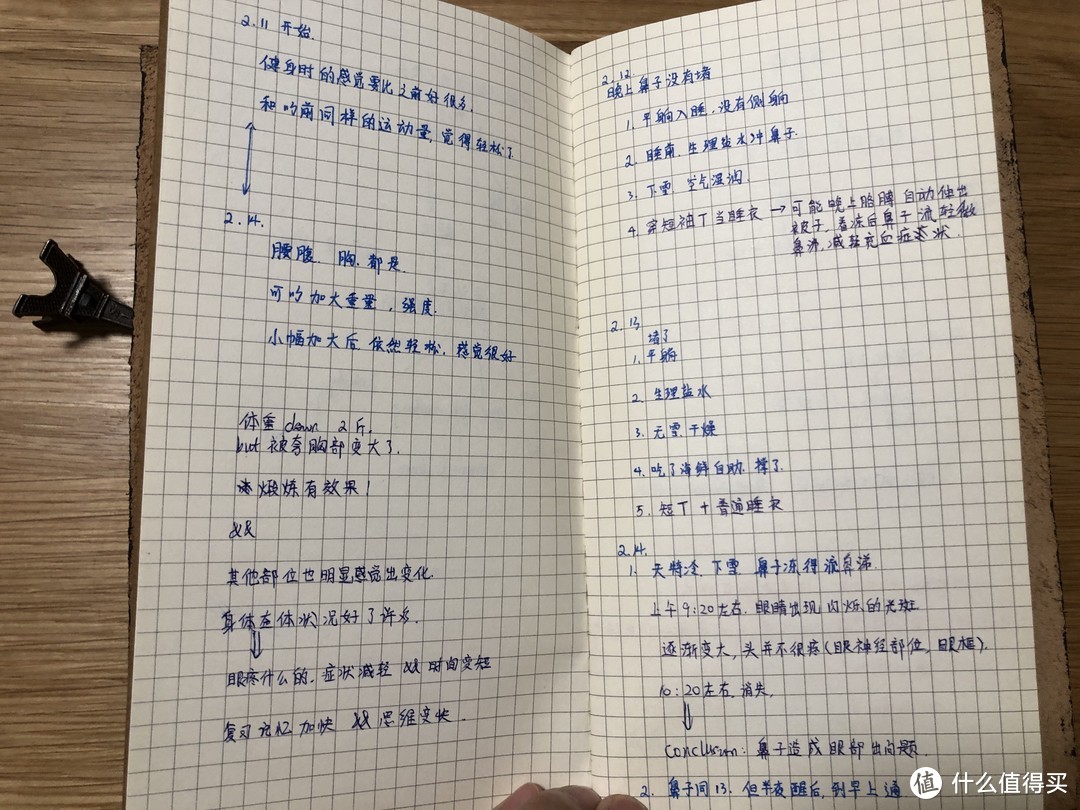 2.11 开始.
健身时的感觉要比之前好很多.
和以前同样的运动量,觉得轻松了
2.14.
腰腹. 胸.都是.
可以加大重量,强度.
小幅加大后依然轻松.感觉很好
体重 down 2斤.
but 被夸胸部变大了.
煅炼有效果!
&&
其他部位也明显感觉出变化.
身体整体状况好了许多.
眼疼什么的.症状减轻 && 时间变短
复习记忆加快 && 思维变快.
2.12
晚上鼻子没有堵
1. 平躺入睡,没有侧躺
2. 睡前.生理盐水冲鼻子.
3. 下雪 空气湿润.
4. 穿短袖T当睡衣 → 可能晚上胳膊自动伸出
被子.着凍后鼻子流轻微
鼻涕,减轻充血症状.
2.13
堵了
1. 平躺
2. 生理盐水
3. 无雪.干燥
4. 吃了海鲜自助.撑了.
5. 短T + 普通睡衣
2.14.
1. 天特冷.下雪 鼻子冻得流鼻涕
上午9:20左右.眼睛出现闪烁的光斑
逐渐变大,头并不很疼(眼神经部位,眼框).
10:20左右.消失.
Conclusion: 鼻子造成眼部出问题.
2. 鼻子同13. 但半夜醒后,到早上通
值 什么值得买